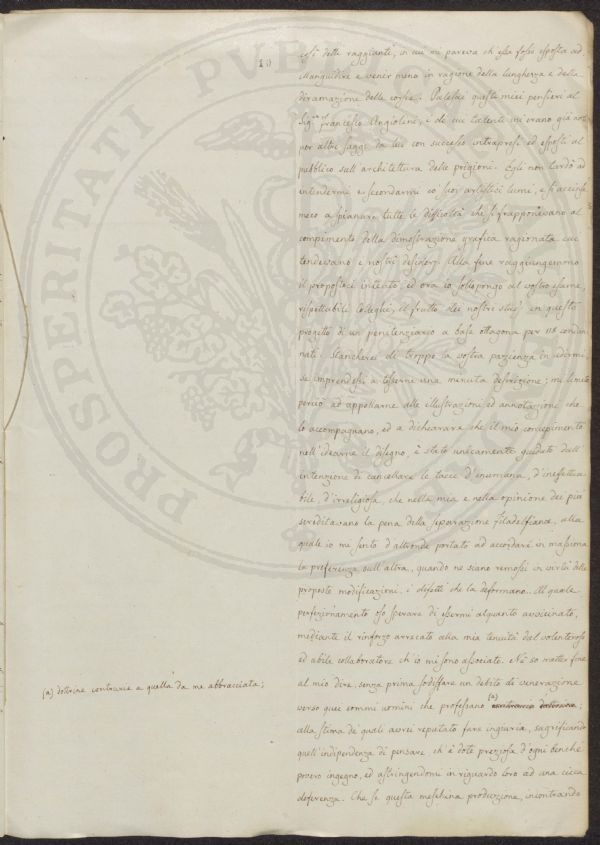 10
così dette raggianti, in cui mi pareva ch'essa fosse esposta ad
illanguidire e venir meno in ragione della lunghezza e della
diramazione delle corsie. Palesai questi miei pensieri al
Sig.r Francesco Angiolini, i di cui talenti mi erano già noti
per altri saggi da lui con successo intrapresi ed esposti al
pubblico sull'architettura delle prigioni. Egli non tardò ad
intendermi e secondarmi co' suoi artistici lumi, e si accinse
meco a spianare tutte le difficoltà che si frapponevano al
compimento della dimostrazione grafica ragionata cui
tendevano i nostri desideri. Alla fine raggiungemmo
il propostoci intento, ed ora io sottopongo al vostro esame,
rispettabili Colleghi, il frutto dei nostri studi in questo
progetto di un penitenziario a base ottagona per 118 condan
nati. Stancherei di troppo la vostra pazienza in udirmi,
se imprendessi a tesserne una minuta descrizione; mi limito
perciò ad appellarne alle illustrazioni ed annotazioni che
lo accompagnano, ed a dichiarare che il mio concepimento
nell'idearne il disegno, è stato unicamente guidato dall'
intenzione di cancellare le tacce d'inumana, d'ineffettua
bile, d'irreligiosa, che nella mia e nella opinione dei più
screditavano la pena della separazione Filadelfiana, alla
quale io mi sento d'altronde portato ad accordare in massima
la preferenza sull'altra, quando ne siano remossi in virtù delle
proposte modificazioni, i difetti che la deformano. Al quale
perfezionamento oso sperare di essermi alquanto avvicinato,
mediante il rinforzo arrecato alla mia tenuità dal volenteroso
ed abile collaboratore ch'io mi sono associato. Nè so metter fine
al mio dire, senza prima sodisfare un debito di venerazione
verso quei sommi uomini che professano (a) contraria dottrina;
alla stima de' quali avrei reputato fare ingiuria, sagrificando
quell'indipendenza di pensare ch'è dote preziosa d'ogni benchè
povero ingegno, ed astringendomi in riguardo loro ad una cieca
deferenza. Che se questa meschina produzione, incontrando
(a) dottrine contrarie a quella da me abbracciata;
PROSPERITATI PUBLICAE